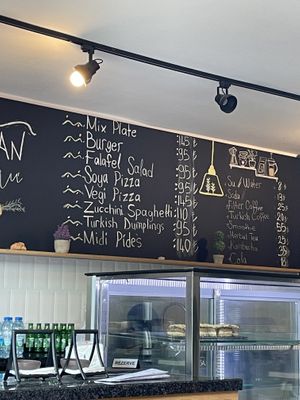 AN
Mix Plate 145 ₺
Burger 95 ₺
Falafel Salad 95 ₺
Soya Pizza 95 ₺
Vegi Pizza 95 ₺
Zucchini Spaghetti 110 ₺
Turkish Dumplings 95 ₺
Midi Pides 140 ₺
Su/Water 8 ₺
Soda
Filter Coffee
Turkish Coffee
Smoothie
Herbal Tea
Kombucha
Cola
REZERVE